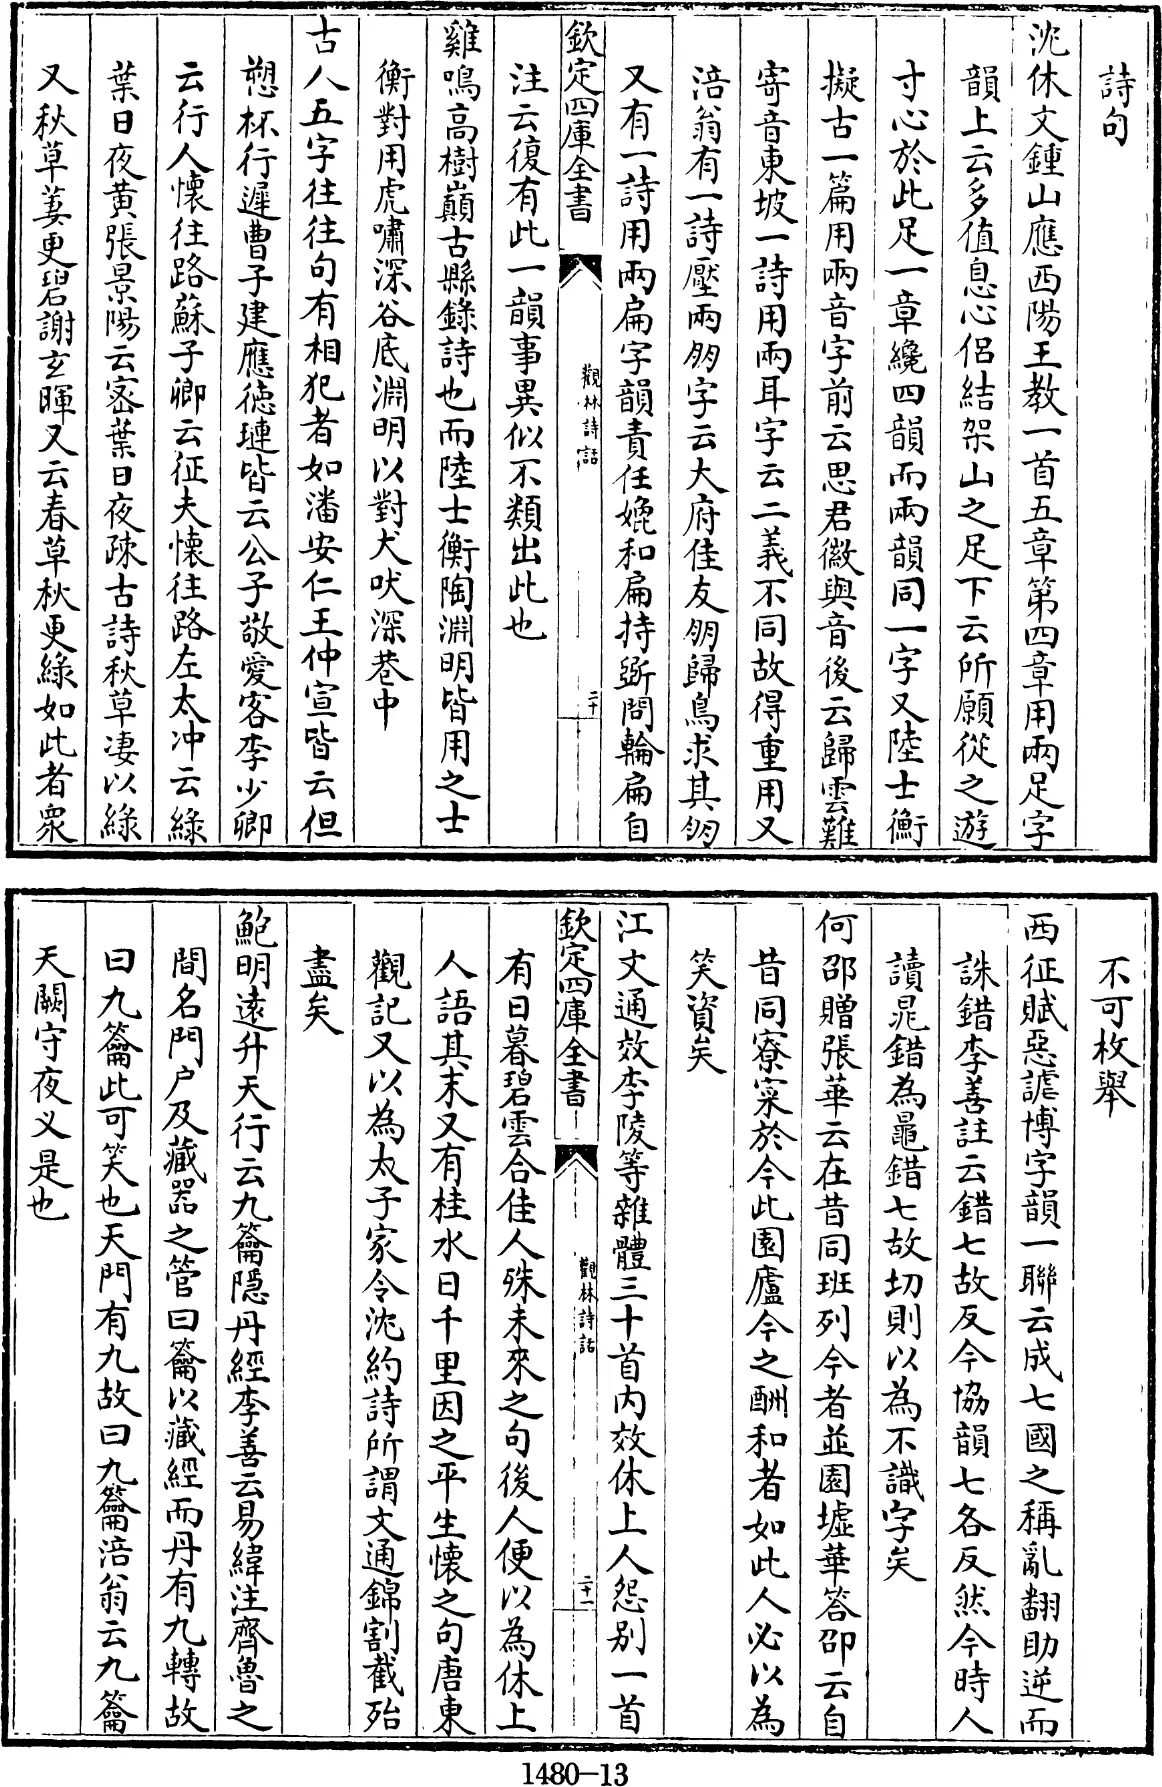 詩句
沈休文鍾山應西陽王教一首五章第四章用兩足字
韻上云多值息心侣結架山之足下云所願從之遊
寸心於此足一章纔四韻而兩韻同一字又陸士衡
擬古一篇用兩音字前云思君徽與音後云歸雲難
寄音東坡一詩用兩耳字云二義不同故得重用又
涪翁有一詩壓兩朋字云大府佳友朋歸鳥求其朋
又有一詩用兩扁字韻責任媲和扁持斵問輪扁自
欽定四庫全書
觀林詩話
二十
注云復有此一韻事異似不類出此也
雞鳴高樹巔古縣錄詩也而陸士衡陶淵明皆用之士
衡對用虎嘯深谷底淵明以對犬吠深巷中
古人五字往往句有相犯者如潘安仁王仲宣皆云但
愬杯行遲曹子建應德璉皆云公子敬愛客李少卿
云行人懷往路蘇子卿云征夫懷往路左太冲云緑
葉日夜黄張景陽云密葉日夜疎古詩秋草凄以緑
又秋草萋更碧謝玄暉又云春草秋更緑如此者衆
不可枚舉
西征賦惡謔博字韻一聯云成七國之稱亂翻助逆而
誅錯李善註云錯七故反今協韻七各反然今時人
讀晁錯為鼂錯七故切則以為不識字矣
何邵贈張華云在昔同班列今者並園墟華答邵云自
昔同寮寀於今比園廬今之酬和者如此人必以為
笑資矣
江文通效李陵等雜體三十首内效休上人怨别一首
欽定四庫全書
觀林詩話
二十一
有日暮碧雲合佳人殊未來之句後人便以為休上
人語其末又有桂水日千里因之平生懷之句唐東
觀記又以為太子家令沈約詩所謂文通錦割截殆
盡矣
鮑明遠升天行云九籥隱丹經李善云易緯注齊魯之
間名門户及藏器之管曰籥以藏經而丹有九轉故
曰九籥此可笑也天門有九故曰九籥涪翁云九籥
天關守夜义是也
1480-13